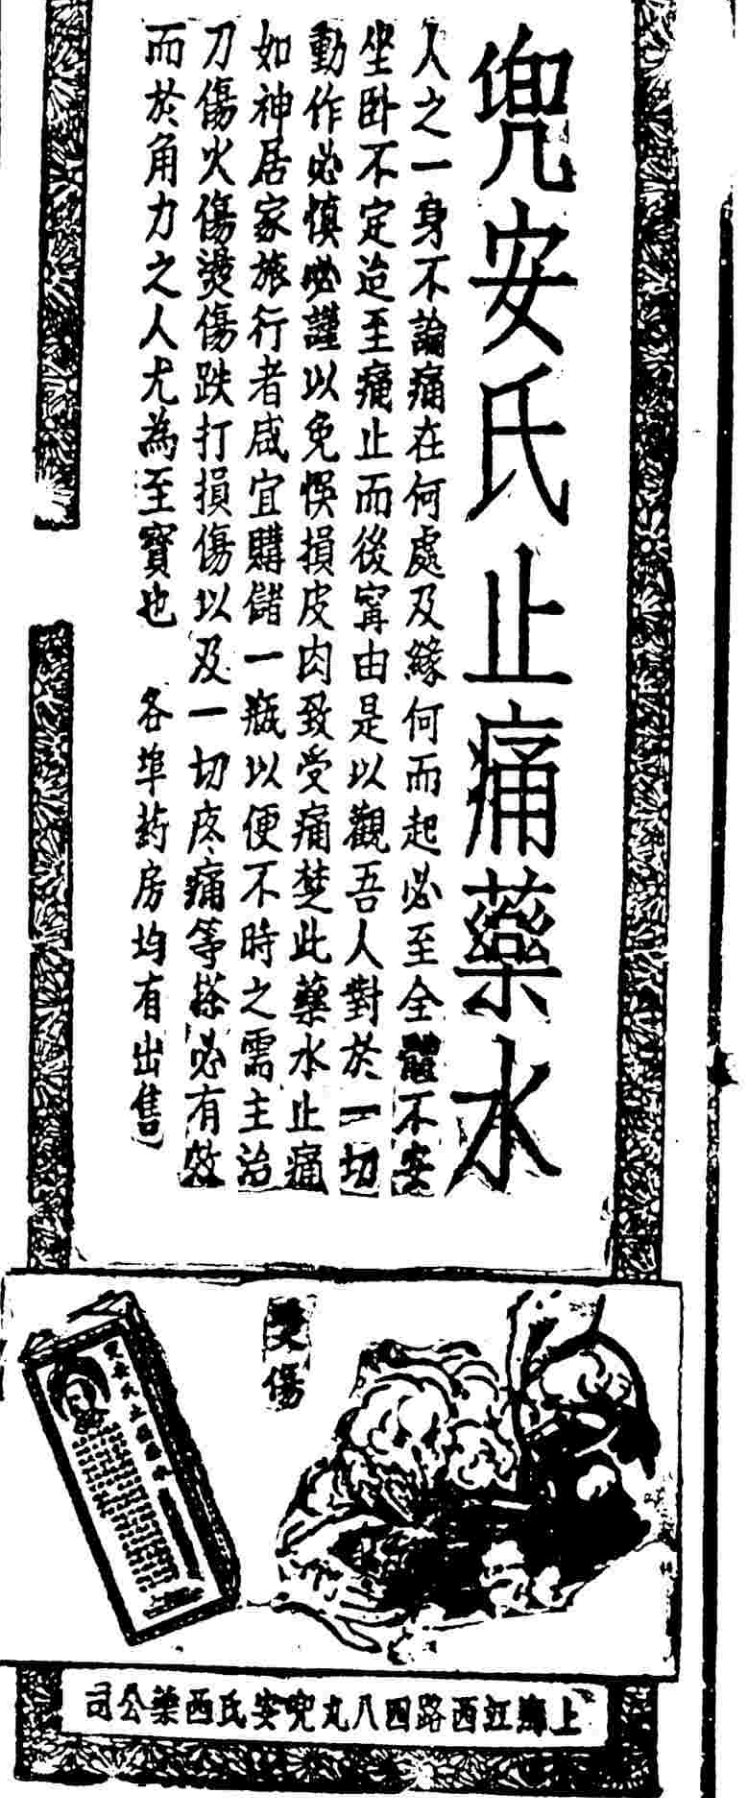 兜安氏止痛藥水
人之一身不論痛在何處及緣何而起必至全體不安
坐卧不定迨至痛止而後寗由是以觀吾人對於一切
動作必慎必謹以免悞損皮肉致受痛楚此藥水止痛
如神居家旅行者咸宜購儲一瓶以便不時之需主治
刀傷火傷燙傷跌打損傷以及一切疼痛等搽必有效
而於角力之人尤為至寶也 各埠药房均有出售
受傷
兜安氏止痛藥水
上海江西路四八九兜安氏西藥公司